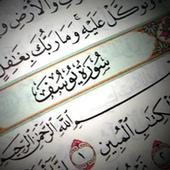 وَالْأَرْضِ
وَتَوَكَّلْ عَلَيْهِ وَمَا رَبُّكَ بِغَٰفِلٍ
سُورَةُ يُوسُفَ
بِسْمِ اللَّهِ الرَّحْمَٰنِ الرَّحِيمِ
الْكِتَٰبِ الْمُبِينِ ١